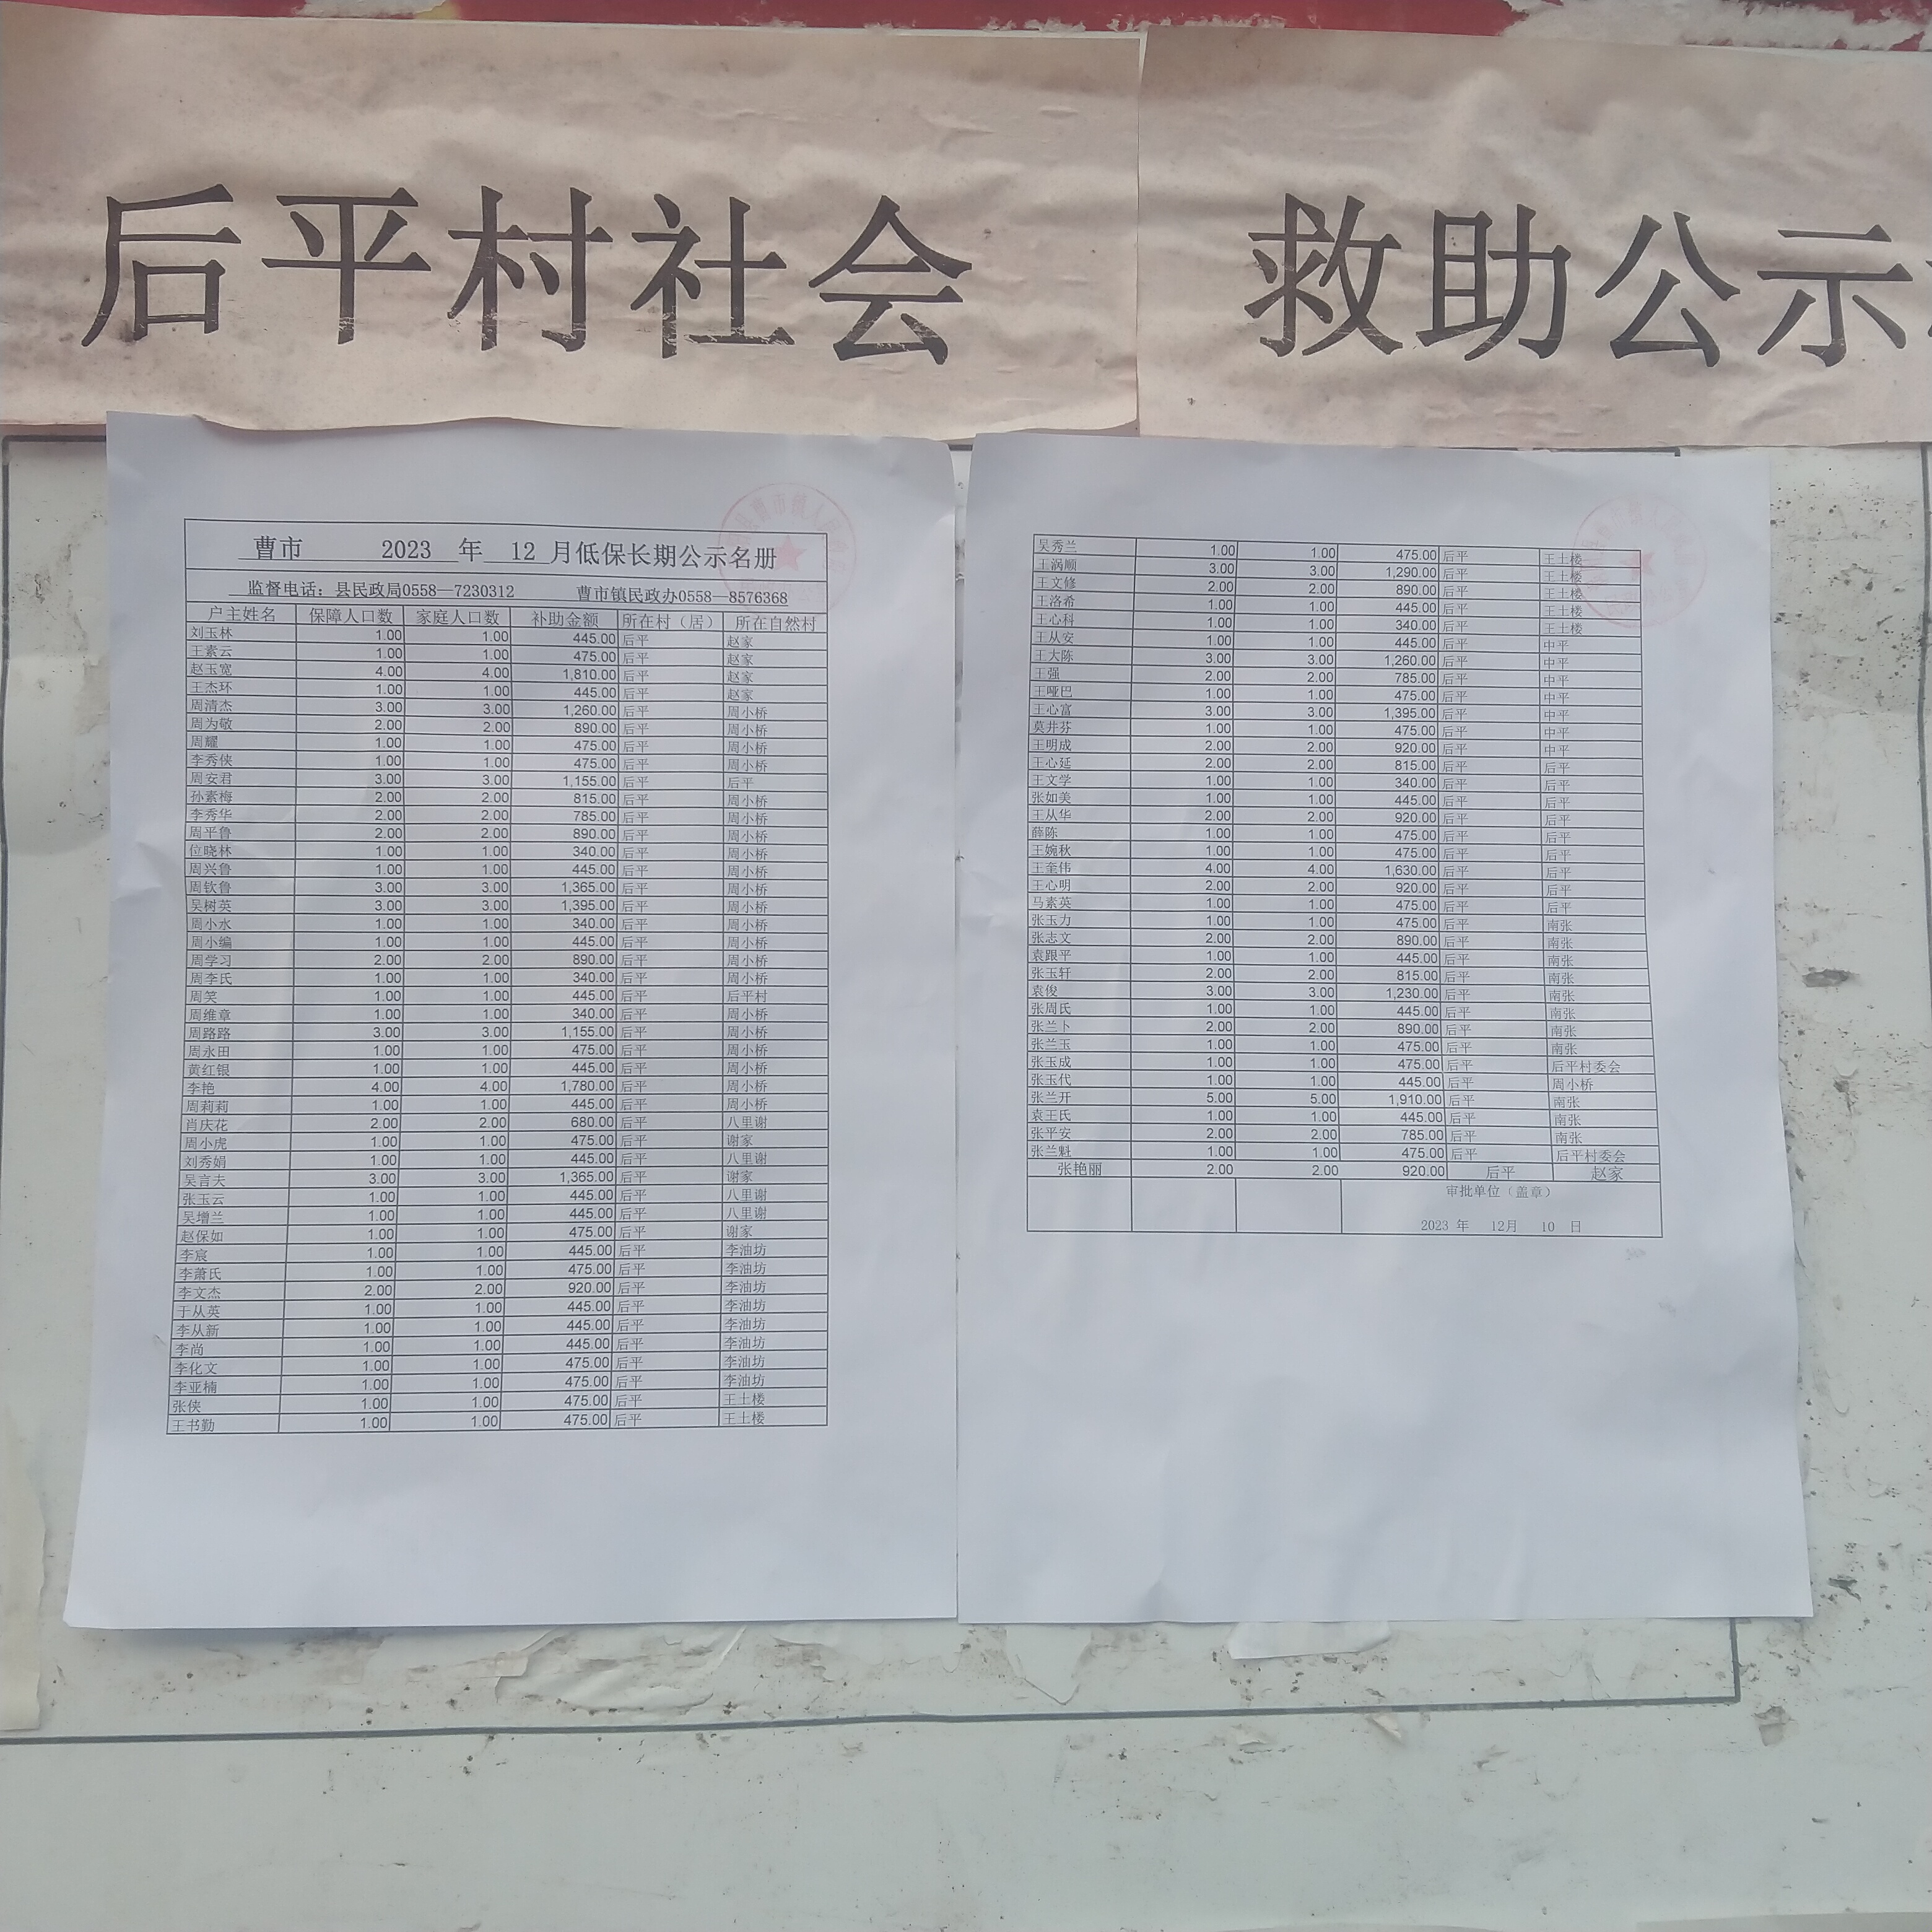 后平村社会 救助公示
曹市 2023 年 12 月低保长期公示名册
监督电话：县民政局0558—7230312 曹市镇民政办0558—8576368
户主姓名 保障人口数 家庭人口数 补助金额 所在村（居） 所在自然村
刘玉林 1.00 1.00 445.00 后平 赵家
王素云 1.00 1.00 475.00 后平 赵家
赵玉宽 4.00 4.00 1,810.00 后平 赵家
王杰环 1.00 1.00 445.00 后平 赵家
周清杰 3.00 3.00 1,260.00 后平 周小桥
周为敬 2.00 2.00 890.00 后平 周小桥
周耀 1.00 1.00 475.00 后平 周小桥
李秀侠 1.00 1.00 475.00 后平 周小桥
周安君 3.00 3.00 1,155.00 后平 后平
孙素梅 2.00 2.00 815.00 后平 周小桥
李秀华 2.00 2.00 785.00 后平 周小桥
周平鲁 2.00 2.00 890.00 后平 周小桥
位晓林 1.00 1.00 340.00 后平 周小桥
周兴鲁 1.00 1.00 445.00 后平 周小桥
周钦鲁 3.00 3.00 1,365.00 后平 周小桥
吴树英 3.00 3.00 1,395.00 后平 周小桥
周小水 1.00 1.00 340.00 后平 周小桥
周小编 1.00 1.00 445.00 后平 周小桥
周学习 2.00 2.00 890.00 后平 周小桥
周李氏 1.00 1.00 340.00 后平 周小桥
周笑 1.00 1.00 445.00 后平 后平村
周维章 1.00 1.00 340.00 后平 周小桥
周路路 3.00 3.00 1,155.00 后平 周小桥
周永田 1.00 1.00 475.00 后平 周小桥
黄红银 1.00 1.00 445.00 后平 周小桥
李艳 4.00 4.00 1,780.00 后平 周小桥
周莉莉 1.00 1.00 445.00 后平 周小桥
肖庆花 2.00 2.00 680.00 后平 八里谢
周小虎 1.00 1.00 475.00 后平 谢家
刘秀娟 1.00 1.00 445.00 后平 八里谢
吴言夫 3.00 3.00 1,365.00 后平 谢家
张玉云 1.00 1.00 445.00 后平 八里谢
吴增兰 1.00 1.00 445.00 后平 八里谢
赵保如 1.00 1.00 475.00 后平 谢家
李宸 1.00 1.00 445.00 后平 李油坊
李萧氏 1.00 1.00 475.00 后平 李油坊
李文杰 2.00 2.00 920.00 后平 李油坊
于从英 1.00 1.00 445.00 后平 李油坊
李从新 1.00 1.00 445.00 后平 李油坊
李尚 1.00 1.00 445.00 后平 李油坊
李化文 1.00 1.00 475.00 后平 李油坊
李亚楠 1.00 1.00 475.00 后平 李油坊
张侠 1.00 1.00 475.00 后平 王土楼
王书勤 1.00 1.00 475.00 后平 王土楼
吴秀兰 1.00 1.00 475.00 后平 王土楼
王涡顺 3.00 3.00 1,290.00 后平 王土楼
王文修 2.00 2.00 890.00 后平 王土楼
王洛希 1.00 1.00 445.00 后平 王土楼
王心科 1.00 1.00 340.00 后平 王土楼
王从安 1.00 1.00 445.00 后平 中平
王大陈 3.00 3.00 1,260.00 后平 中平
王强 2.00 2.00 785.00 后平 中平
王哑巴 1.00 1.00 475.00 后平 中平
王心富 3.00 3.00 1,395.00 后平 中平
莫井芬 1.00 1.00 475.00 后平 中平
王明成 2.00 2.00 920.00 后平 中平
王心延 2.00 2.00 815.00 后平 后平
王文学 1.00 1.00 340.00 后平 后平
张如美 1.00 1.00 445.00 后平 后平
王从华 2.00 2.00 920.00 后平 后平
薛陈 1.00 1.00 475.00 后平 后平
王婉秋 1.00 1.00 475.00 后平 后平
王奎伟 4.00 4.00 1,630.00 后平 后平
王心明 2.00 2.00 920.00 后平 后平
马素英 1.00 1.00 475.00 后平 后平
张玉力 1.00 1.00 475.00 后平 南张
张志文 2.00 2.00 890.00 后平 南张
袁跟平 1.00 1.00 445.00 后平 南张
张玉轩 2.00 2.00 815.00 后平 南张
袁俊 3.00 3.00 1,230.00 后平 南张
张周氏 1.00 1.00 445.00 后平 南张
张兰卜 2.00 2.00 890.00 后平 南张
张兰玉 1.00 1.00 475.00 后平 南张
张玉成 1.00 1.00 475.00 后平 后平村委会
张玉代 1.00 1.00 445.00 后平 周小桥
张兰开 5.00 5.00 1,910.00 后平 南张
袁王氏 1.00 1.00 445.00 后平 南张
张平安 2.00 2.00 785.00 后平 南张
张兰魁 1.00 1.00 475.00 后平 后平村委会
张艳丽 2.00 2.00 920.00 后平 赵家
审批单位（盖章）
2023 年 12月 10 日